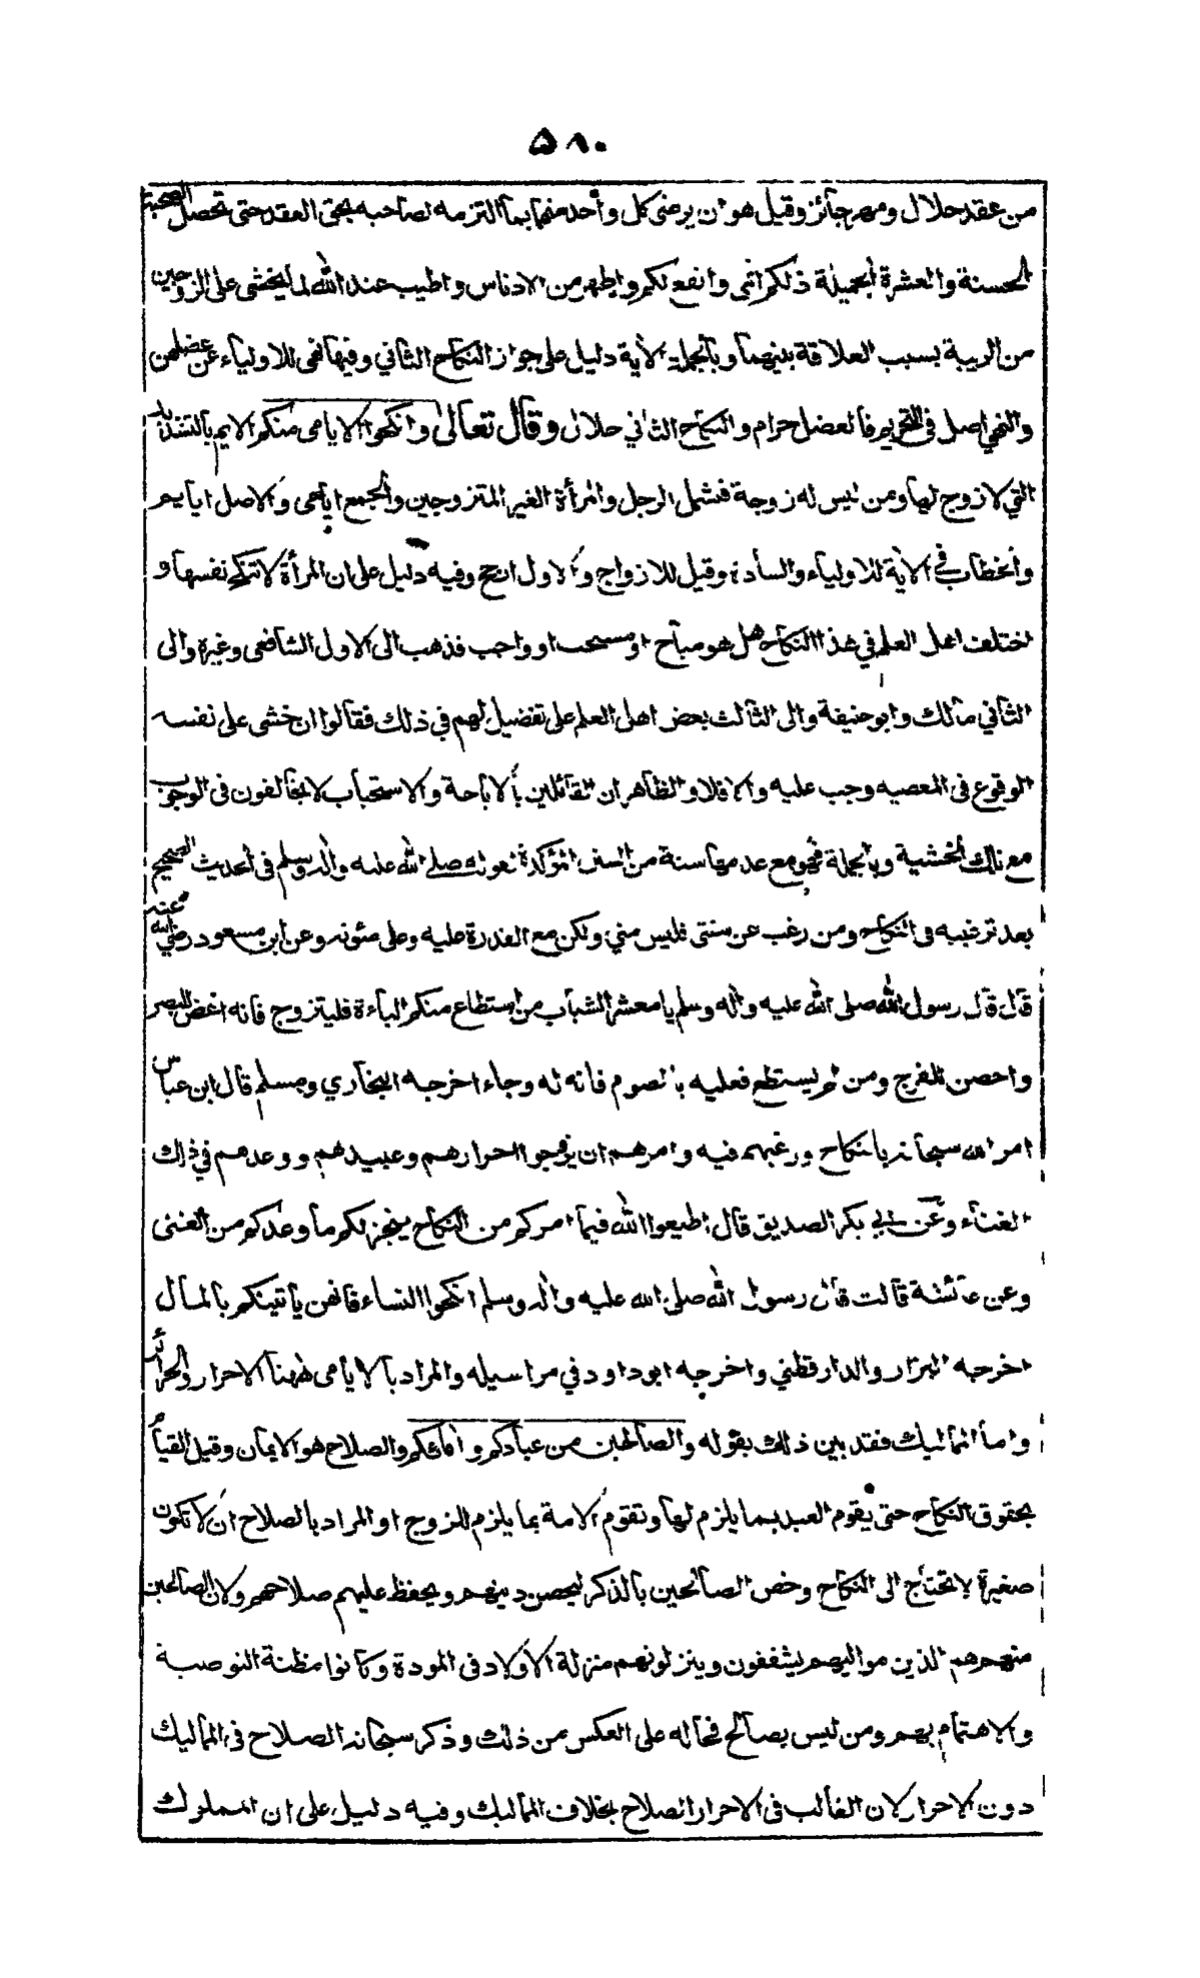 ٥٨٠
من عقد حلال ومهر جائز وقيل هو ان يرضى كل واحد منهما بما التزمه لصاحبه بحق العقد حتى تحصل الصحبة
الحسنة والعشرة الجميلة ذلكم ازكى وانفع لكم واطهر من الادناس واطيب عند الله لما يخشى على الزوجين
من الريبة بسبب العلاقة بينهما وبالجملة الآية دليل على جواز النكاح الثاني وفيها نهى للاولياء عن عضلهن
والنهي اصل في التحريم فالعضل حرام والنكاح الثاني حلال وقال تعالى وانكحوا الايامى منكم الايم بالتشديد
التي لا زوج لها ومن ليس له زوجة فشمل الرجل والمرأة الغير المتزوجين والجمع ايامى والاصل ايايم
والخطاب في الآية للاولياء والسادة وقيل للازواج والاول ارجح وفيه دليل على ان المرأة لا تنكح نفسها و
اختلف اهل العلم في هذا النكاح هل هو مباح او مستحب او واجب فذهب الى الاول الشافعي وغيره والى
الثاني مالك وابو حنيفة والى الثالث بعض اهل العلم على تفضيل لهم في ذلك فقالوا ان خشى على نفسه
الوقوع في المعصيه وجب عليه والا فلا والظاهر ان القائلين بالاباحة والاستحباب لا يخالفون في الوجوب
مع تلك الخشية وبالجملة فهو مع عدمها سنة من السنن المؤكدة لقوله صلى الله عليه واله وسلم في الحديث الصحيح
بعد ترغيبه في النكاح ومن رغب عن سنتي فليس مني ولكن مع القدرة عليه وعلى مئونه وعن ابن مسعود رضي الله عنه
قال قال رسول الله صلى الله عليه واله وسلم يا معشر الشباب من استطاع منكم الباءة فليتزوج فانه اغض للبصر
واحصن للفرج ومن لم يستطع فعليه بالصوم فانه له وجاء اخرجه البخاري ومسلم قال ابن عباس
امر الله سبحانه بالنكاح ورغبهم فيه وامرهم ان يزوجوا احرارهم وعبيدهم ووعدهم في ذلك
الغناء وعن ابي بكر الصديق قال اطيعوا الله فيما امركم من النكاح ينجز لكم ما وعدكم من الغنى
وعن عائشة قالت قال رسول الله صلى الله عليه واله وسلم انكحوا النساء فانهن يأتينكم بالمال
اخرجه البزار والدارقطني واخرجه ابو داود في مراسيله والمراد بالايامى ههنا الاحرار والحرائر
واما المماليك فقد بين ذلك بقوله والصالحين من عبادكم وامائكم والصلاح هو الايمان وقيل القيام
بحقوق النكاح حتى يقوم العبد بما يلزم لها وتقوم الامة بما يلزم للزوج او المراد بالصلاح ان لا تكون
صغيرة لا تحتاج الى النكاح وخص الصالحين بالذكر ليحصن دينهم ويحفظ عليهم صلاحهم ولان الصالحين
منهم هم الذين مواليهم يشفقون وينزلونهم منزلة الاولاد في المودة وكانوا مظنة التوصية
والاهتمام بهم ومن ليس بصالح فحاله على العكس من ذلك وذكر سبحانه الصلاح في المماليك
دون الاحرار لان الغالب في الاحرار الصلاح بخلاف المماليك وفيه دليل على ان المملوك